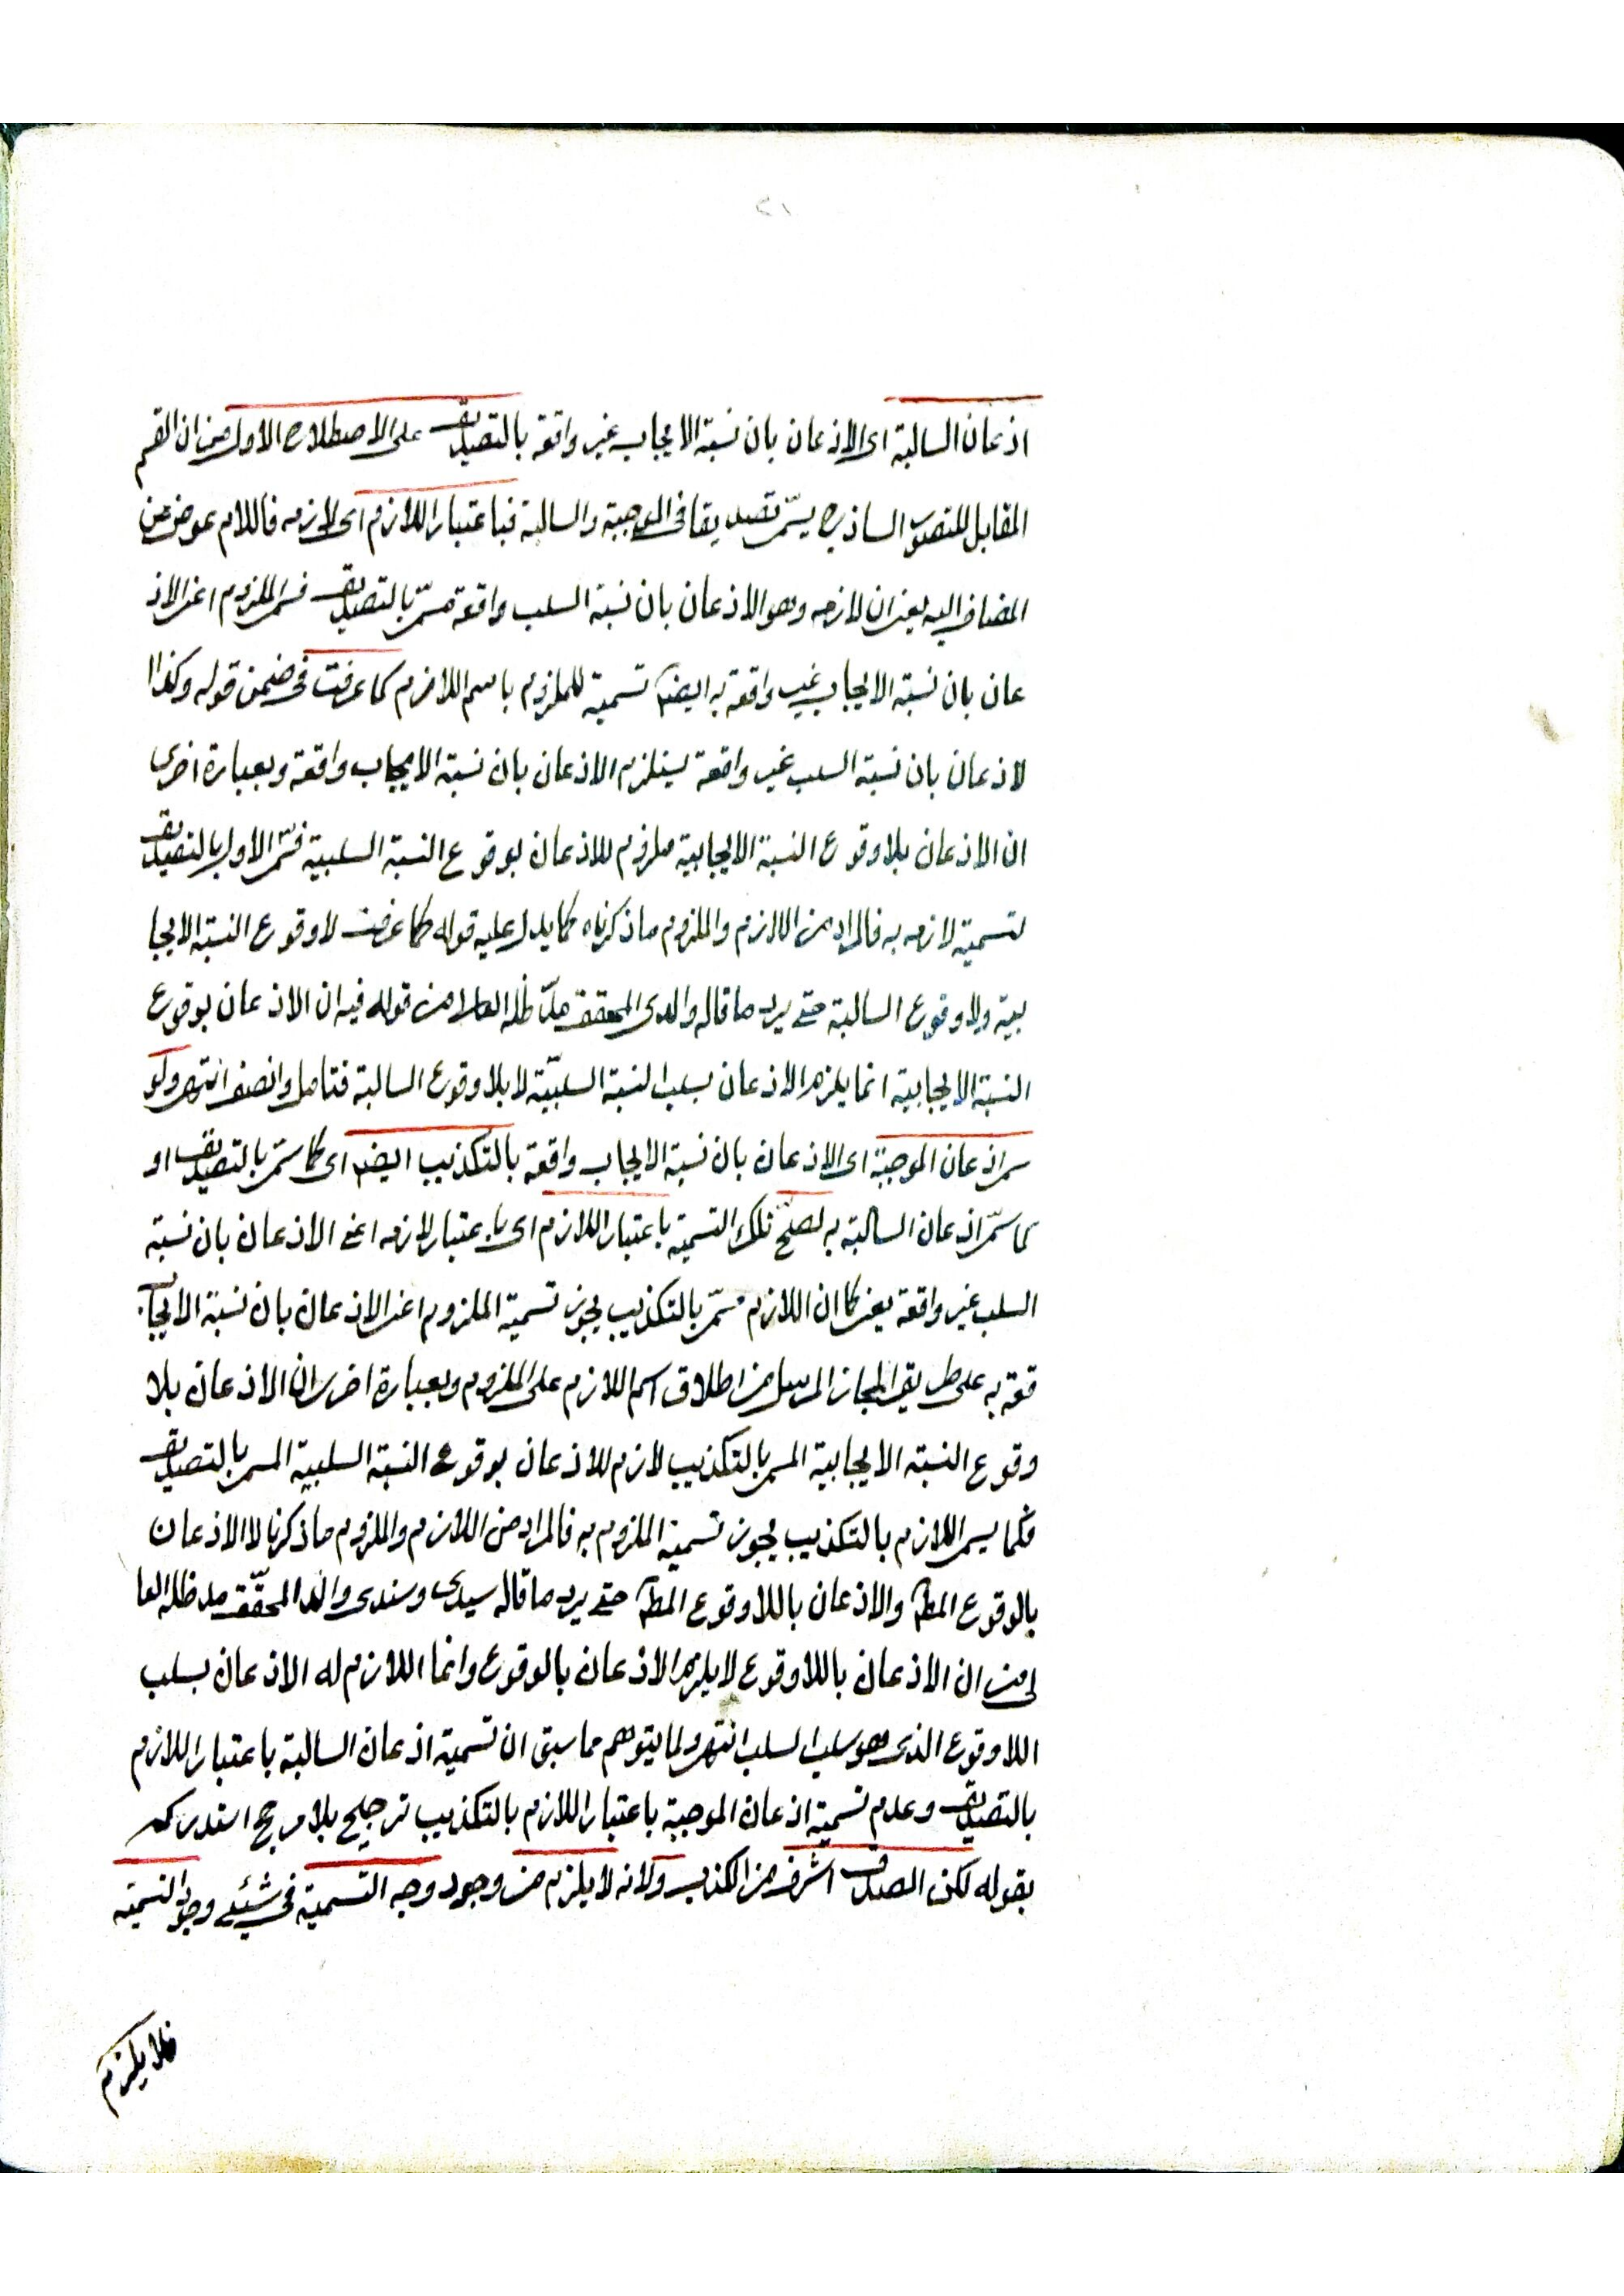 ٢١
اذعان السالبة اى الاذعان بان نسبة الايجاب غير واقعة بالتصديق على الاصطلاح الاول من ان القسم
المقابل للتصور الساذج يسمّى تصديقا فى الموجبة والسالبة فباعتبار اللازم اى لازمه فاللام عوض عن
المضاف اليه يعنى ان لازمه وهو الاذعان بان نسبة السلب واقعة مسمّى بالتصديق فسمى الملزوم اعنى الاذ
عان بان نسبة الايجاب غير واقعة به ايضا تسمية للملزوم باسم اللازم كما عرفت فى ضمن قوله وكذا ا
لاذعان بان نسبة السلب غير واقعة يستلزم الاذعان بان نسبة الايجاب واقعة وبعبارة اخرى
ان الاذعان بلا وقوع النسبة الايجابية ملزوم للاذعان بوقوع النسبة السلبية فسمّى الاول بالتصديق
لتسمية لازمه به فالمراد من اللازم والملزوم ما ذكرناه كما يدل عليه قوله كما عرفت لا وقوع النسبة الايجا
بية ولا وقوع السالبة حتى يرد ما قاله والدى المحقق مدّ ظله العالى من قوله فيه ان الاذعان بوقوع
النسبة الايجابية انما يلزمه الاذعان بسلب النسبة السلبيّة لا بلا وقوع السالبة فتامل وانصف انتهى ولو
سمى اذعان الموجبة اى الاذعان بان نسبة الايجاب واقعة بالتكذيب ايضا اى كما سمّى بالتصديق او
كما سمّى اذعان السالبة به لصلح تلك التسمية باعتبار اللازم اى باعتبار لازمه اعنى الاذعان بان نسبة
السلب غير واقعة يعنى كما ان اللازم مسمّى بالتكذيب يجوز تسمية الملزوم اعنى الاذعان بان نسبة الايجاب
قعة به على طريق المجاز المرسل من اطلاق اسم اللازم على الملزوم وبعبارة اخرى ان الاذعان بلا
وقوع النسبة الايجابية المسمى بالتكذيب لازم للاذعان بوقوع النسبة السلبية المسمى بالتصديق
فكما يسمى اللازم بالتكذيب يجوز تسمية الملزوم به فالمراد من اللازم والملزوم ما ذكرنا لا الاذعان
بالوقوع المط والاذعان باللا وقوع المط حتى يرد ما قاله سيدى وسندى والدى المحقّق مد ظله العا
لى من ان الاذعان باللا وقوع لا يلزمه الاذعان بالوقوع وانما اللازم له الاذعان بسلب
اللا وقوع الذى هو سلب السلب انتهى ولما يتوهم مما سبق ان تسمية اذعان السالبة باعتبار اللازم
بالتصديق وعدم تسمية اذعان الموجبة باعتبار اللازم بالتكذيب ترجيح بلا مرجح استدركه
بقوله لكن الصدق اشرف من الكذب ولانه لا يلزم من وجود وجه التسمية فى شئ وجود التسمية
فلا يلزم